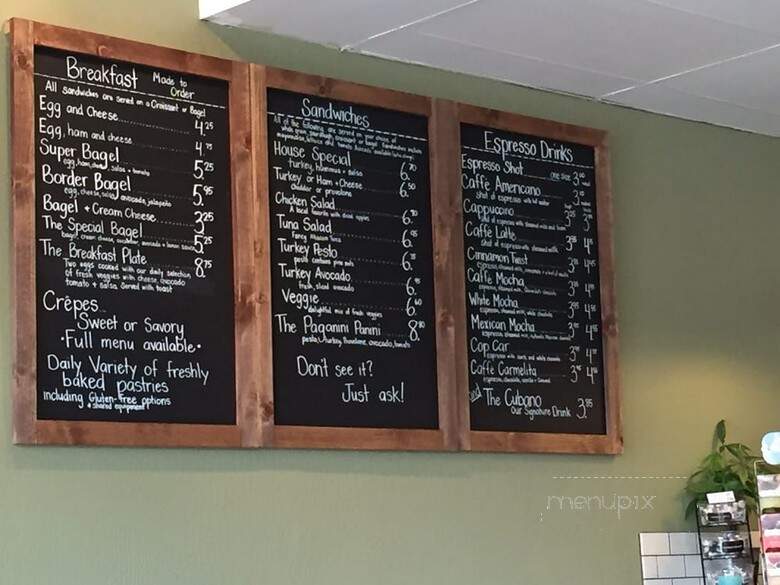 Breakfast
Made to
Order
All sandwiches are served on a Croissant or Bagel
Egg and Cheese 4.25
Egg, ham and cheese 4.75
Super Bagel 5.25
egg, ham, salsa + tomato
Border Bagel 5.95
egg, cheese, salsa, avocado, jalapeño
Bagel + Cream Cheese 3.25
The Special Bagel 5.25
bagel, cream cheese, cucumber, avocado + lemon
The Breakfast Plate 8.75
Two eggs cooked with our daily selection
of fresh veggies with cheese, avocado
tomato + salsa. Served with toast
Crêpes
Sweet or Savory
•Full menu available•
Daily Variety of freshly
baked pastries
including Gluten-Free options
* shared equipment!
Sandwiches
All of the following are served on your choice of
whole grain, sourdough, croissant or bagel. Sandwiches include
mayonnaise, lettuce and tomato. Avocado available
House Special 6.70
turkey, hummus + salsa
Turkey or Ham + Cheese 6.50
cheddar or provolone
Chicken Salad 6.
A local favorite with diced apples
Tuna Salad 6.
Fancy Albacore Tuna
Turkey Pesto 6.
pesto contains pine nuts
Turkey Avocado 6.
fresh, sliced avocado
Veggie 6.60
delightful mix of fresh veggies
The Paganini Panini 8.
pesto, turkey, provolone, avocado, tomato
Don't see it?
Just ask!
Espresso Drinks
Espresso Shot one size 3.
Caffè Americano 3.
shot of espresso with hot water
Cappuccino 3.25 3.
shot of espresso with steamed milk and foam
Caffè Latte 3. 4.
shot of espresso with steamed milk
Cinnamon Twist 3. 4.
espresso, steamed milk, cinnamon
Caffè Mocha 3. 4.
espresso, steamed milk, chocolate
White Mocha 3. 4.
espresso, steamed milk, white chocolate
Mexican Mocha 3. 4.
espresso, steamed milk,
Cop Car 3. 4.
espresso with dark and white chocolate
Caffè Carmelita 3. 4.
espresso, chocolate, vanilla + caramel
The Cubano 3.85
Our Signature Drink
menupix